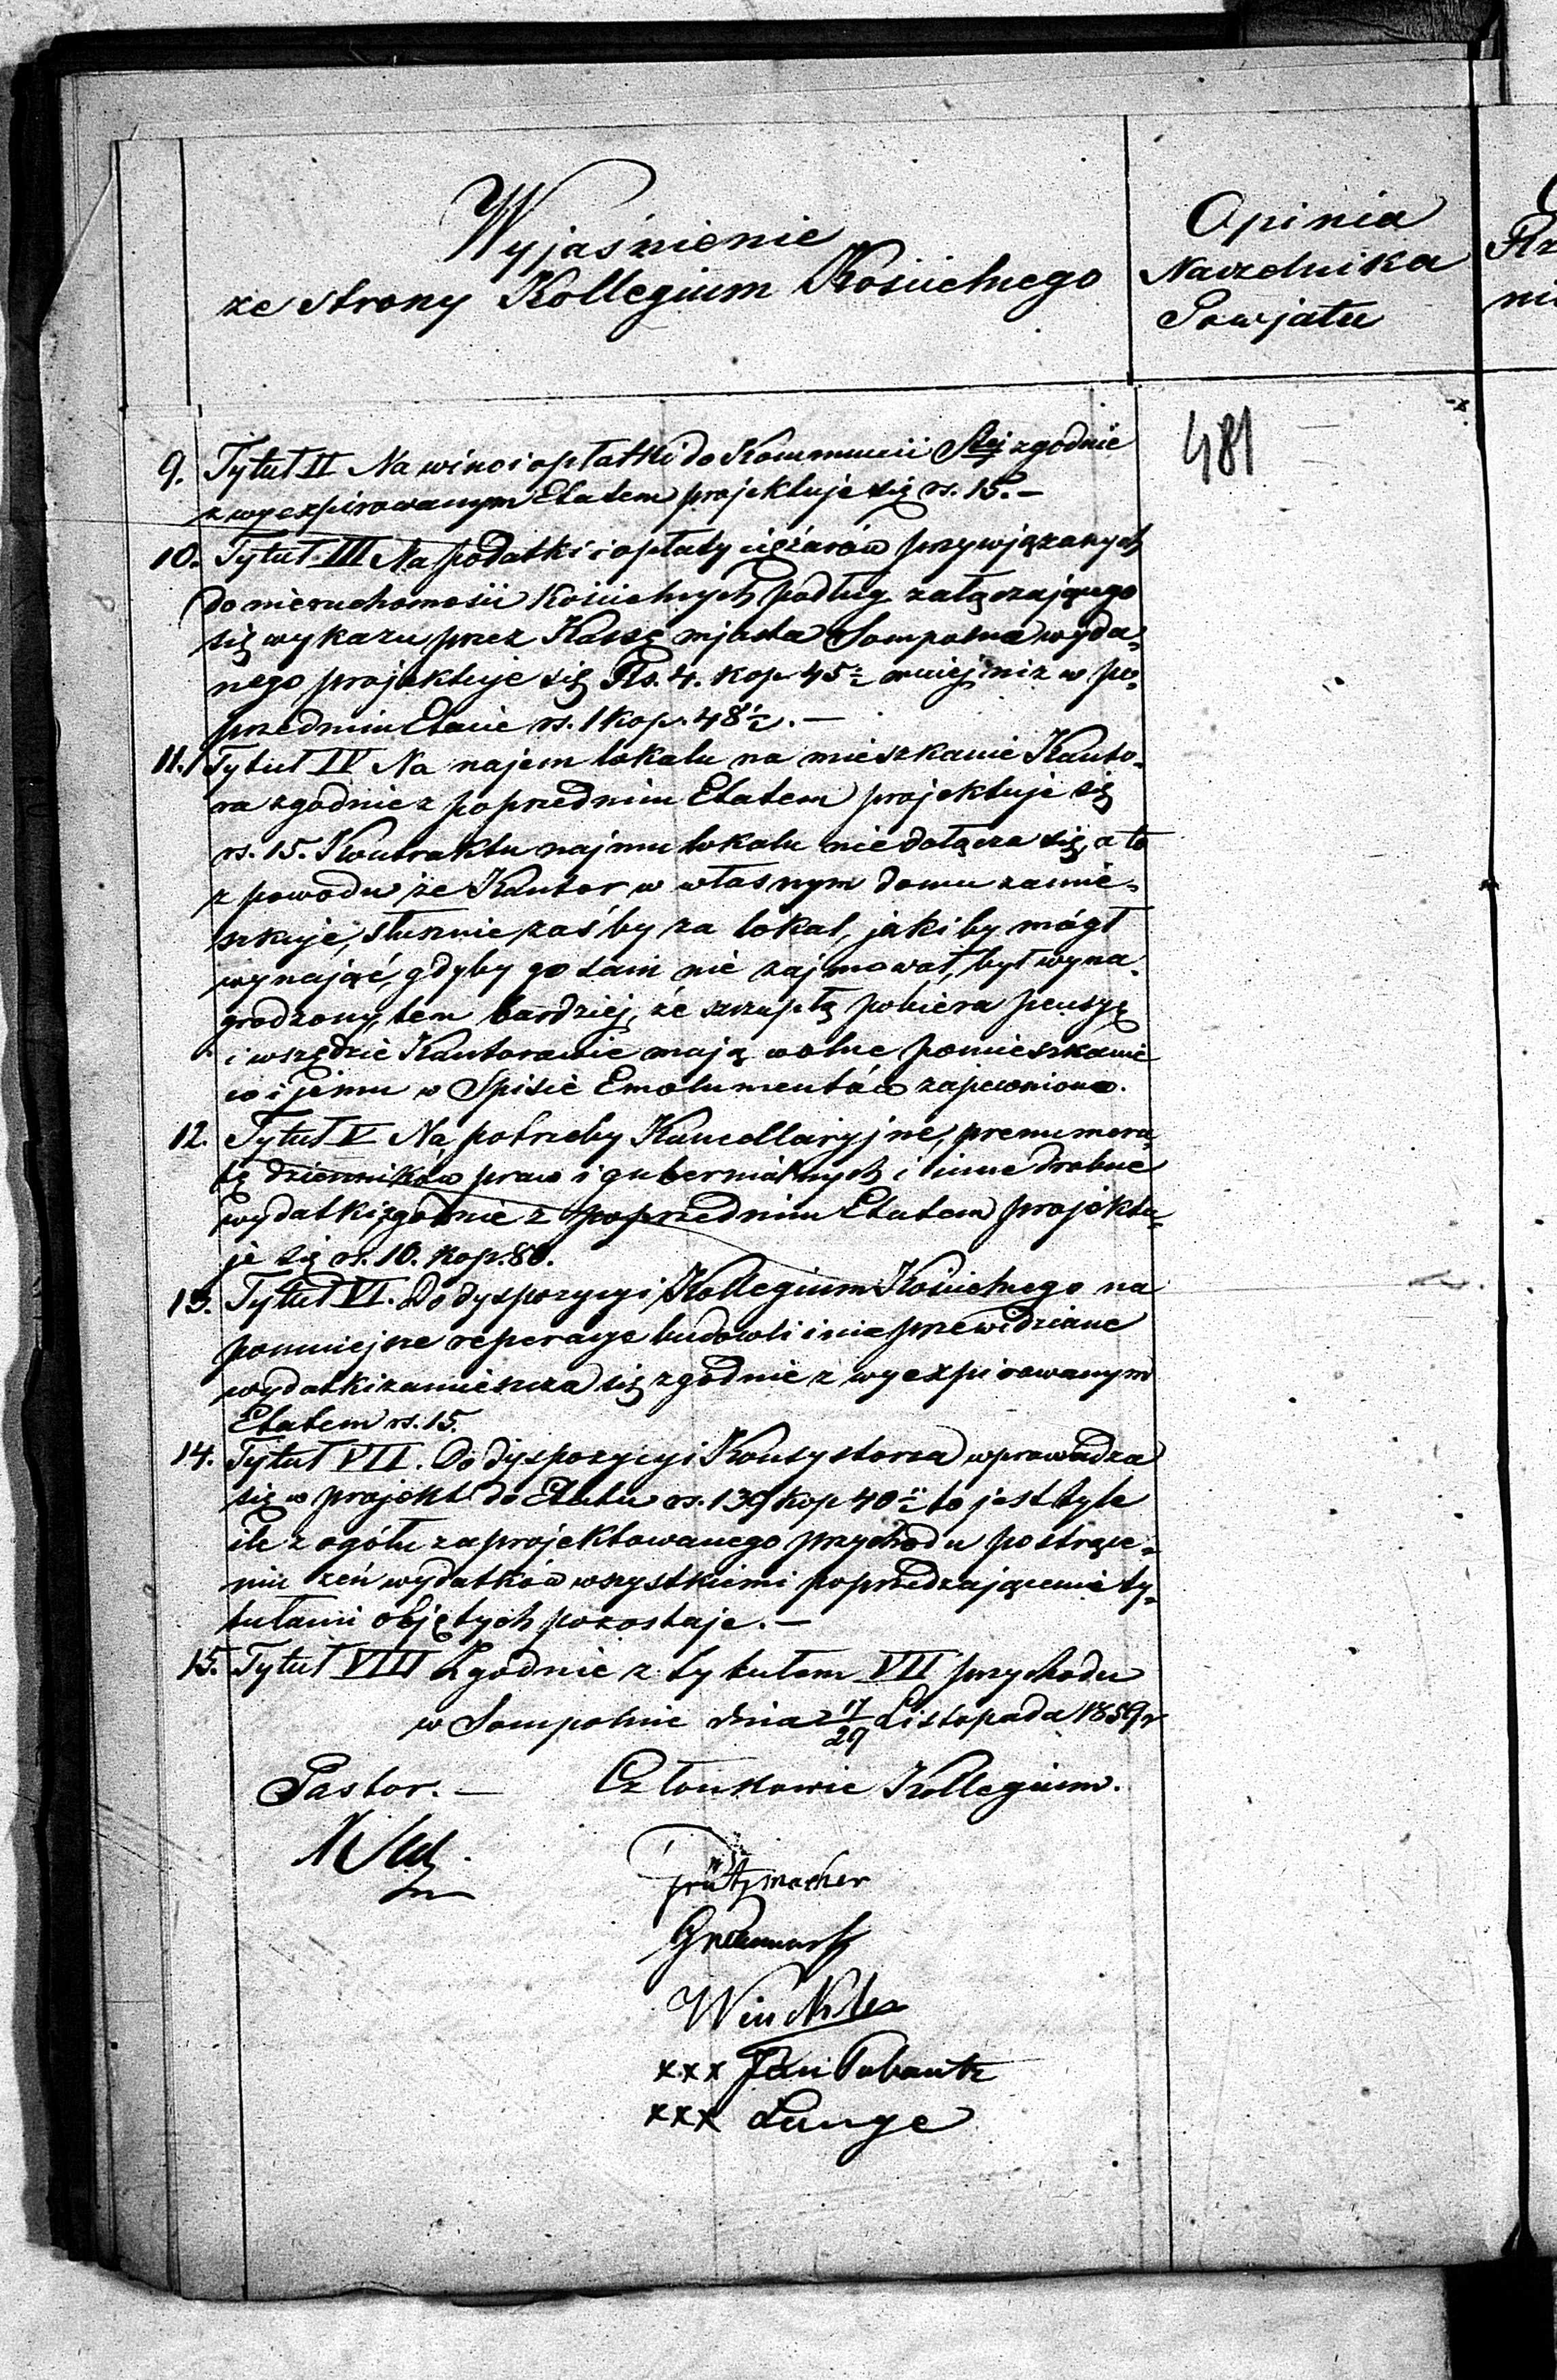 Wyjaśnienie
ze strony Kollegium Kościelnego
Opinia
Naczelnika
Powjatu
481
9. Tytuł II Na wino i opłatki do Kommunii Stej zgodnie
z wyexpirowanym Etatem projektuje się rs. 15.-
10. Tytuł III Na podatki i opłaty ciężarów przywjązanych
do nieruchomości Kościelnych podług załączającego
się wykazu przez Kassę mjasta Sompolna wyda-
nego projektuje się Rs. 4. kop. 45½ mniej niż w po-
przednim Etacie rs. 1 kop. 48½.-
11. Tytuł IV Na najem lokalu na mieszkanie Kanto-
ra zgodnie z poprzednim Etatem projektuje się
rs. 15. Kontraktu najmu lokalu nie dołącza się, a to
z powodu że Kantor w własnym domu zamie-
szkuje, słusznie zaś by za lokal, jaki by mógł
wynająć, gdyby go sam nie zajmował, był wyna-
grodzony, tem bardziej, że szczupłą pobiera pensyę
i wszędzie Kantorowie mają wolne pomieszkanie
co i jemu w Spisie Emolumentów zapewniono.
12. Tytuł V Na potrzeby Kancellaryjne, prenumera-
tę dzienników praw i gubernialnych i inne drobne
wydatki zgodnie z poprzednim Etatem projektu-
je się rs. 10. kop. 80.
13. Tytuł VI. Do dyspozycyi Kollegium Kościelnego na
pomniejsze reperacye budowli i nieprzewidziane
wydatki zamieszcza się zgodnie z wyexpirowanym
Etatem rs. 15.
14. Tytuł VII. Do dyspozycyi Konsystorza wprowadza
się w projekt do Etatu rs. 139 kop 40½ to jest tyle
ile z ogółu zaprojektowanego przychodu po strące-
niu zeń wydatków wszystkiemi poprzedzającemi ty-
tułami objętych pozostaje.-
15. Tytuł VIII Zgodnie z tytułem VII przychodu
w Sompolnie dnia 17/29 Listopada 1859 r
Pastor.-
Członkowie Kollegium.
Prützmacher
Winkler
xxx Jan
xxx Lange